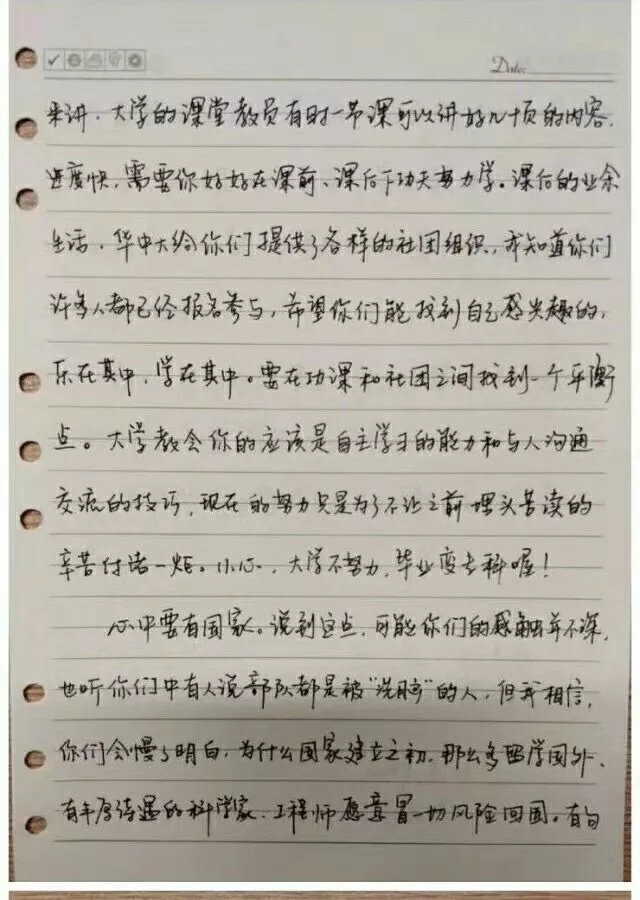 Date:
来讲，大学的课堂教员有时一节课可以讲好几十页的内容，
进度快，需要你好好在课前、课后下功夫努力学。课后的业余
生活，华中大给你们提供了各样的社团组织，我知道你们
许多人都已经报名参与，希望你们能找到自己感兴趣的，
乐在其中，学在其中。要在功课和社团之间找到一个平衡
点。大学教会你的应该是自主学习的能力和与人沟通
交流的技巧，现在的努力只是为了不让之前埋头苦读的
辛苦付诸一炬。小心，大学不努力，毕业变专科喔！
心中要有国家。说到这点，可能你们的感触并不深，
也听你们中有人说部队都是被“洗脑”的人，但我相信，
你们会慢慢明白，为什么国家建立之初，那么多留学国外、
有丰厚待遇的科学家、工程师愿意冒一切风险回国。有句